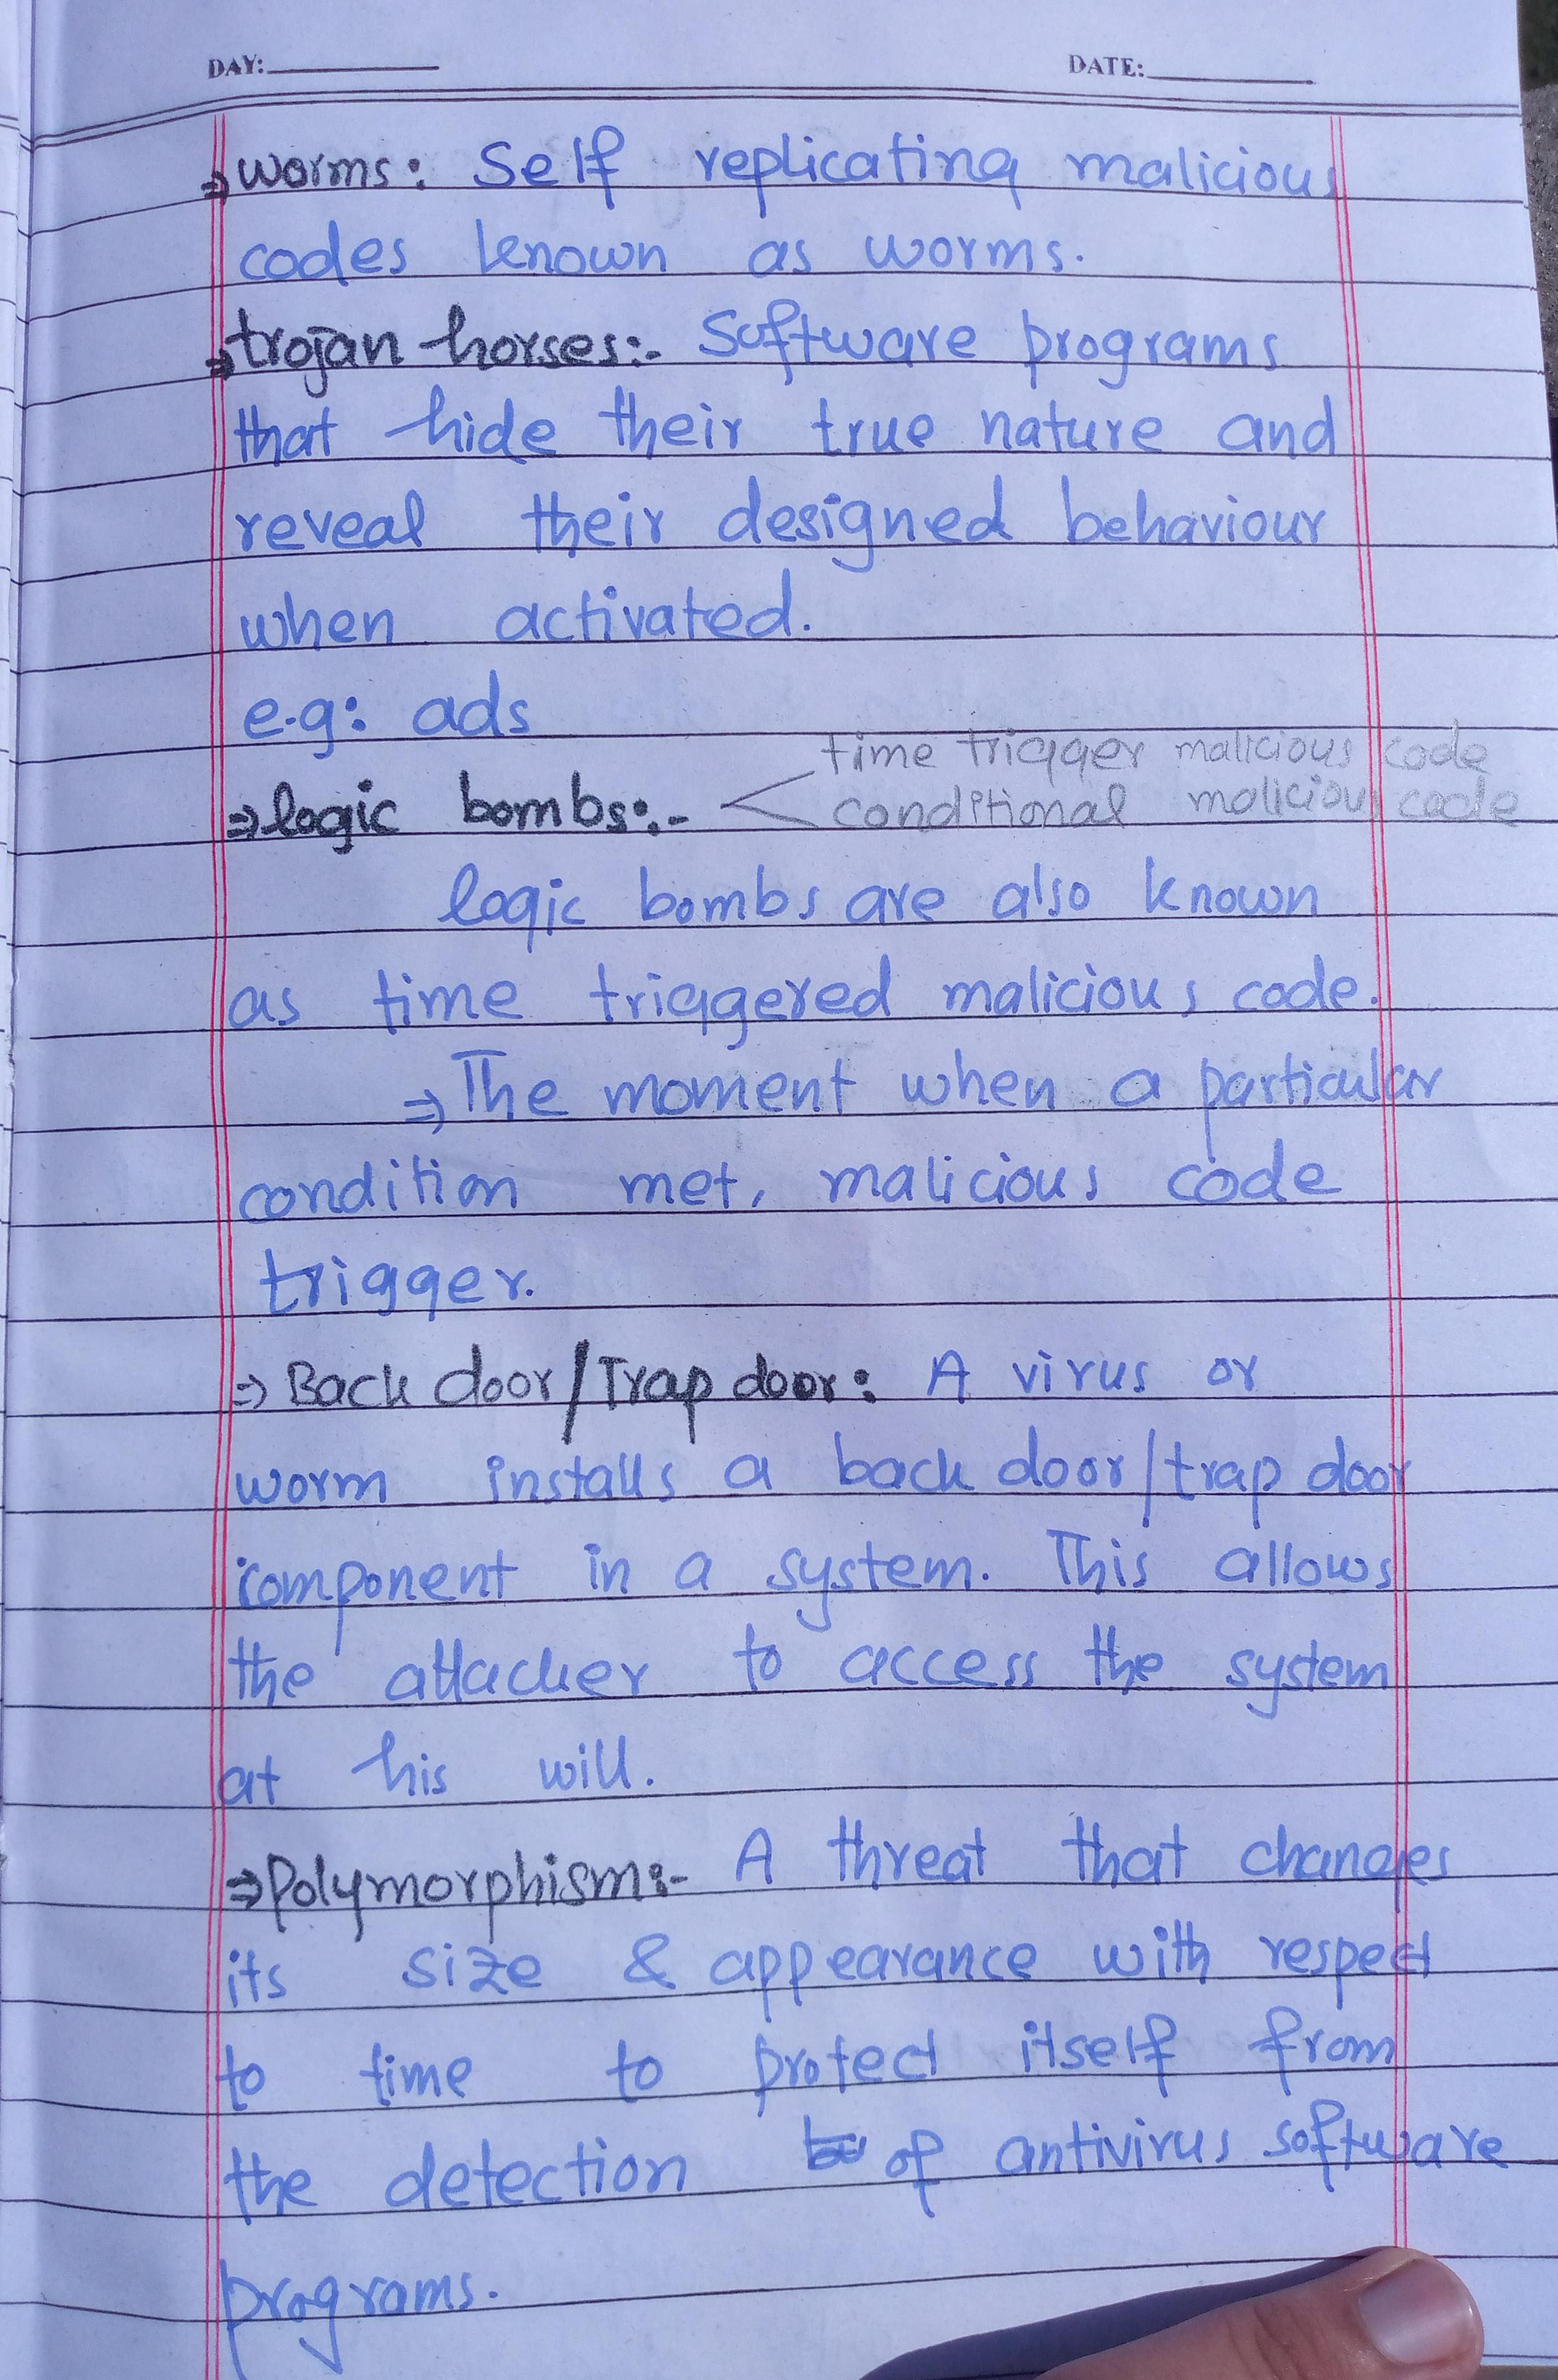 DAY: DATE:
⇒worms: Self replicating malicious
codes known as worms.
⇒trojan horses:- Software programs
that hide their true nature and
reveal their designed behaviour
when activated.
e.g: ads
time trigger malicious code
⇒logic bombs:- < conditional malicious code
logic bombs are also known
as time triggered malicious code.
⇒The moment when a particular
condition met, malicious code
trigger.
⇒ Back door/Trap door: A virus or
worm installs a back door/trap door
component in a system. This allows
the attacker to access the system
at his will.
⇒Polymorphism:- A threat that changes
its size & appearance with respect
to time to protect itself from
the detection of antivirus software
programs.